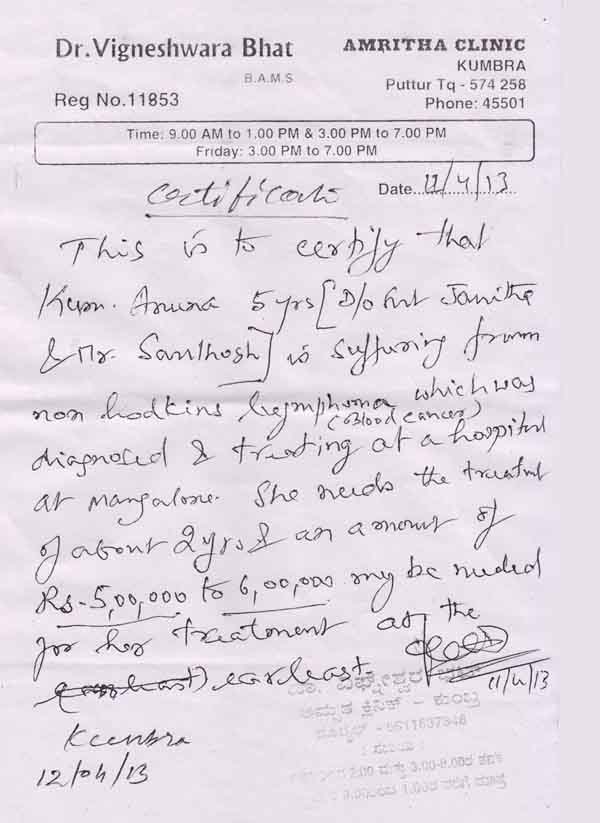 Dr.Vigneshwara Bhat
B.A.M.S
Reg No.11853
AMRITHA CLINIC
KUMBRA
Puttur Tq - 574 258
Phone: 45501
Time: 9.00 AM to 1.00 PM & 3.00 PM to 7.00 PM
Friday: 3.00 PM to 7.00 PM
Date 11/4/13
Certificate
This is to certify that
Kum. 5 yrs [D/o Smt
& Mr. Santhosh] is suffuring from
non hodkins lymphoma which was
(Blood cancer)
diagnosed & treating at a hospital
at Mangalore. She needs the treatment
of about 2 yrs & an amount of
Rs-5,00,000 to 6,00,000 may be needed
for her treatment as the
earleast
11/4/13
Kumbra
12/04/13
ಅಮೃತ ಕ್ಲಿನಿಕ್ - ಕುಂಬ್ರ